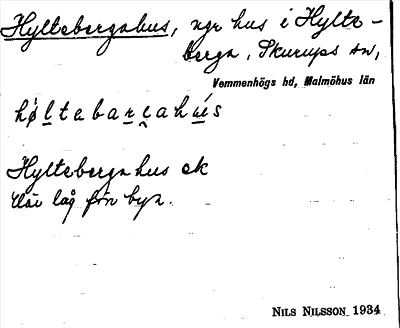 Hyltebergahus, ngr hus i Hylte-
berga, Skurups sn,
Vemmenhögs hd, Malmöhus län
Hyltebergahus ek
låg från byn.
NILS NILSSON 1934